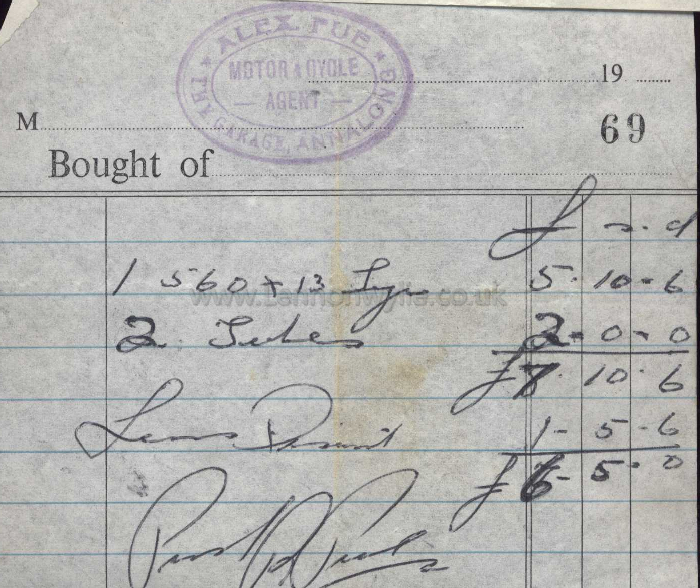 ALEX PUE
MOTOR & CYCLE
AGENT
THE GARAGE, ANNALONG
19
M
69
Bought of
£ s. d
1 560 x 13 Tyre 5-10-6
www.lennonwylie.co.uk
2 Tubes 2-0-0
£7-10-6
Less Discount 1-5-6
£6-5-0
Paid